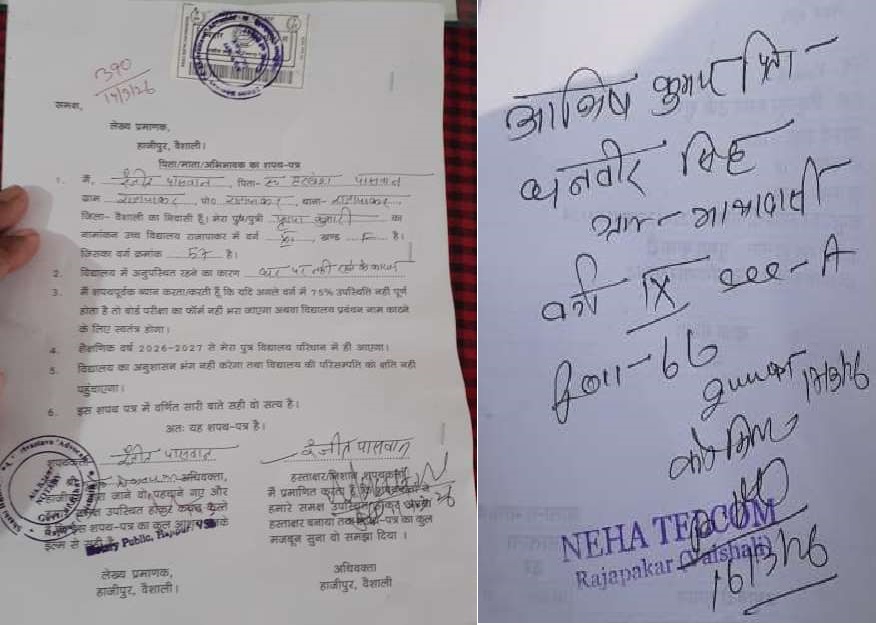 390
17/3/26
समक्ष,
लेख्य प्रमाणक,
हाजीपुर, वैशाली।
पिता/माता/अभिभावक का शपथ-पत्र
1. मैं, रंजीत पासवान, पिता- स्व हरवंश पासवान
ग्राम राजापाकर, पो० राजापाकर, थाना- राजापाकर
जिला- वैशाली का निवासी हूँ। मेरा पुत्र/पुत्री कुमारी का
नामांकन उच्च विद्यालय राजापाकर में वर्ग, खण्ड है।
जिसका वर्ग क्रमांक 57 है।
2. विद्यालय में अनुपस्थित रहने का कारण घर पर नहीं रहने के कारण
3. मैं शपथपूर्वक ब्यान करता/करती हूँ कि यदि अगले वर्ग में 75% उपस्थिति नहीं पूर्ण
होता है तो बोर्ड परीक्षा का फॉर्म नहीं भरा जाएगा अथवा विद्यालय प्रबंधन नाम काटने
के लिए स्वतंत्र होगा।
4. शैक्षणिक वर्ष 2026-2027 से मेरा पुत्र विद्यालय परिधान में ही आएगा।
5. विद्यालय का अनुशासन भंग नहीं करेगा तथा विद्यालय की परिसम्पति को क्षति नहीं
पहुंचाएगा।
6. इस शपथ पत्र में वर्णित सारी बाते सही वो सत्य है।
अतः यह शपथ-पत्र है।
शपथकर्ता रंजीत पासवान
अधिवक्ता,
जाने वो पहचाने गए और
उपस्थित होकर कबूल करते
इस शपथ-पत्र का कुल
इल्म से सही है
Notary Public, Hajipur
लेख्य प्रमाणक,
हाजीपुर, वैशाली।
रंजीत पासवान
हस्ताक्षर/निशान शपथकर्ता
में प्रमाणित करता हूँ कि
हमारे समक्ष उपस्थित होकर अपना
हस्ताक्षर बनाया तथा शपथ-पत्र का कुल
मजबून सुना वो समझा दिया ।
अधिवक्ता
हाजीपुर, वैशाली
आशिष कुमार पिता-
धनवीर सिंह
ग्राम-
वर्ग IX sec-A
Roll-66
17/3/26
NEHA TELCOM
Rajapakar (Vaishali)
16/3/26